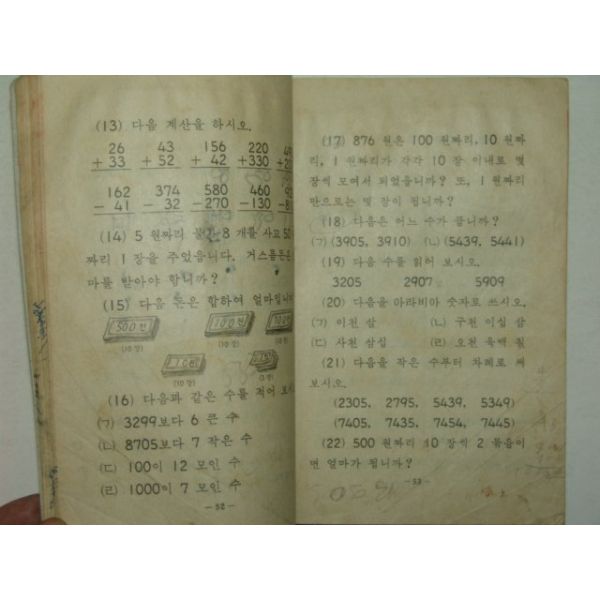 (13) 다음 계산을 하시오.
26 43 156 220
+ 33 + 52 + 42 +330
162 374 580 460
- 41 - 32 -270 -130
(14) 5 원짜리 물건 8 개를 사고 50
짜리 1 장을 주었읍니다. 거스름돈은
마를 받아야 합니까?
(15) 다음 돈은 합하여 얼마입니까
500원 100원
(10 장) (10 장)
10원
(10 장)
(16) 다음과 같은 수를 적어 보시
(ㄱ) 3299보다 6 큰 수
(ㄴ) 8705보다 7 작은 수
(ㄷ) 100이 12 모인 수
(ㄹ) 1000이 7 모인 수
— 52 —
(17) 876 원은 100 원짜리, 10 원짜
리, 1 원짜리가 각각 10 장 이내로 몇
장씩 모여서 되었읍니까? 또, 1 원짜리
만으로는 몇 장이 됩니까?
(18) 다음은 어느 수가 큽니까?
(ㄱ) (3905, 3910) (ㄴ) (5439, 5441)
(19) 다음 수를 읽어 보시오.
3205 2907 5909
(20) 다음을 아라비아 숫자로 쓰시오.
(ㄱ) 이천 삼 (ㄴ) 구천 이십 삼
(ㄷ) 사천 삼십 (ㄹ) 오천 육백 원
(21) 다음을 작은 수부터 차례로 써
보시오.
(2305, 2795, 5439, 5349)
(7405, 7435, 7454, 7445)
(22) 500 원짜리 10 장씩 2 묶음이
면 얼마가 됩니까?
— 53 —